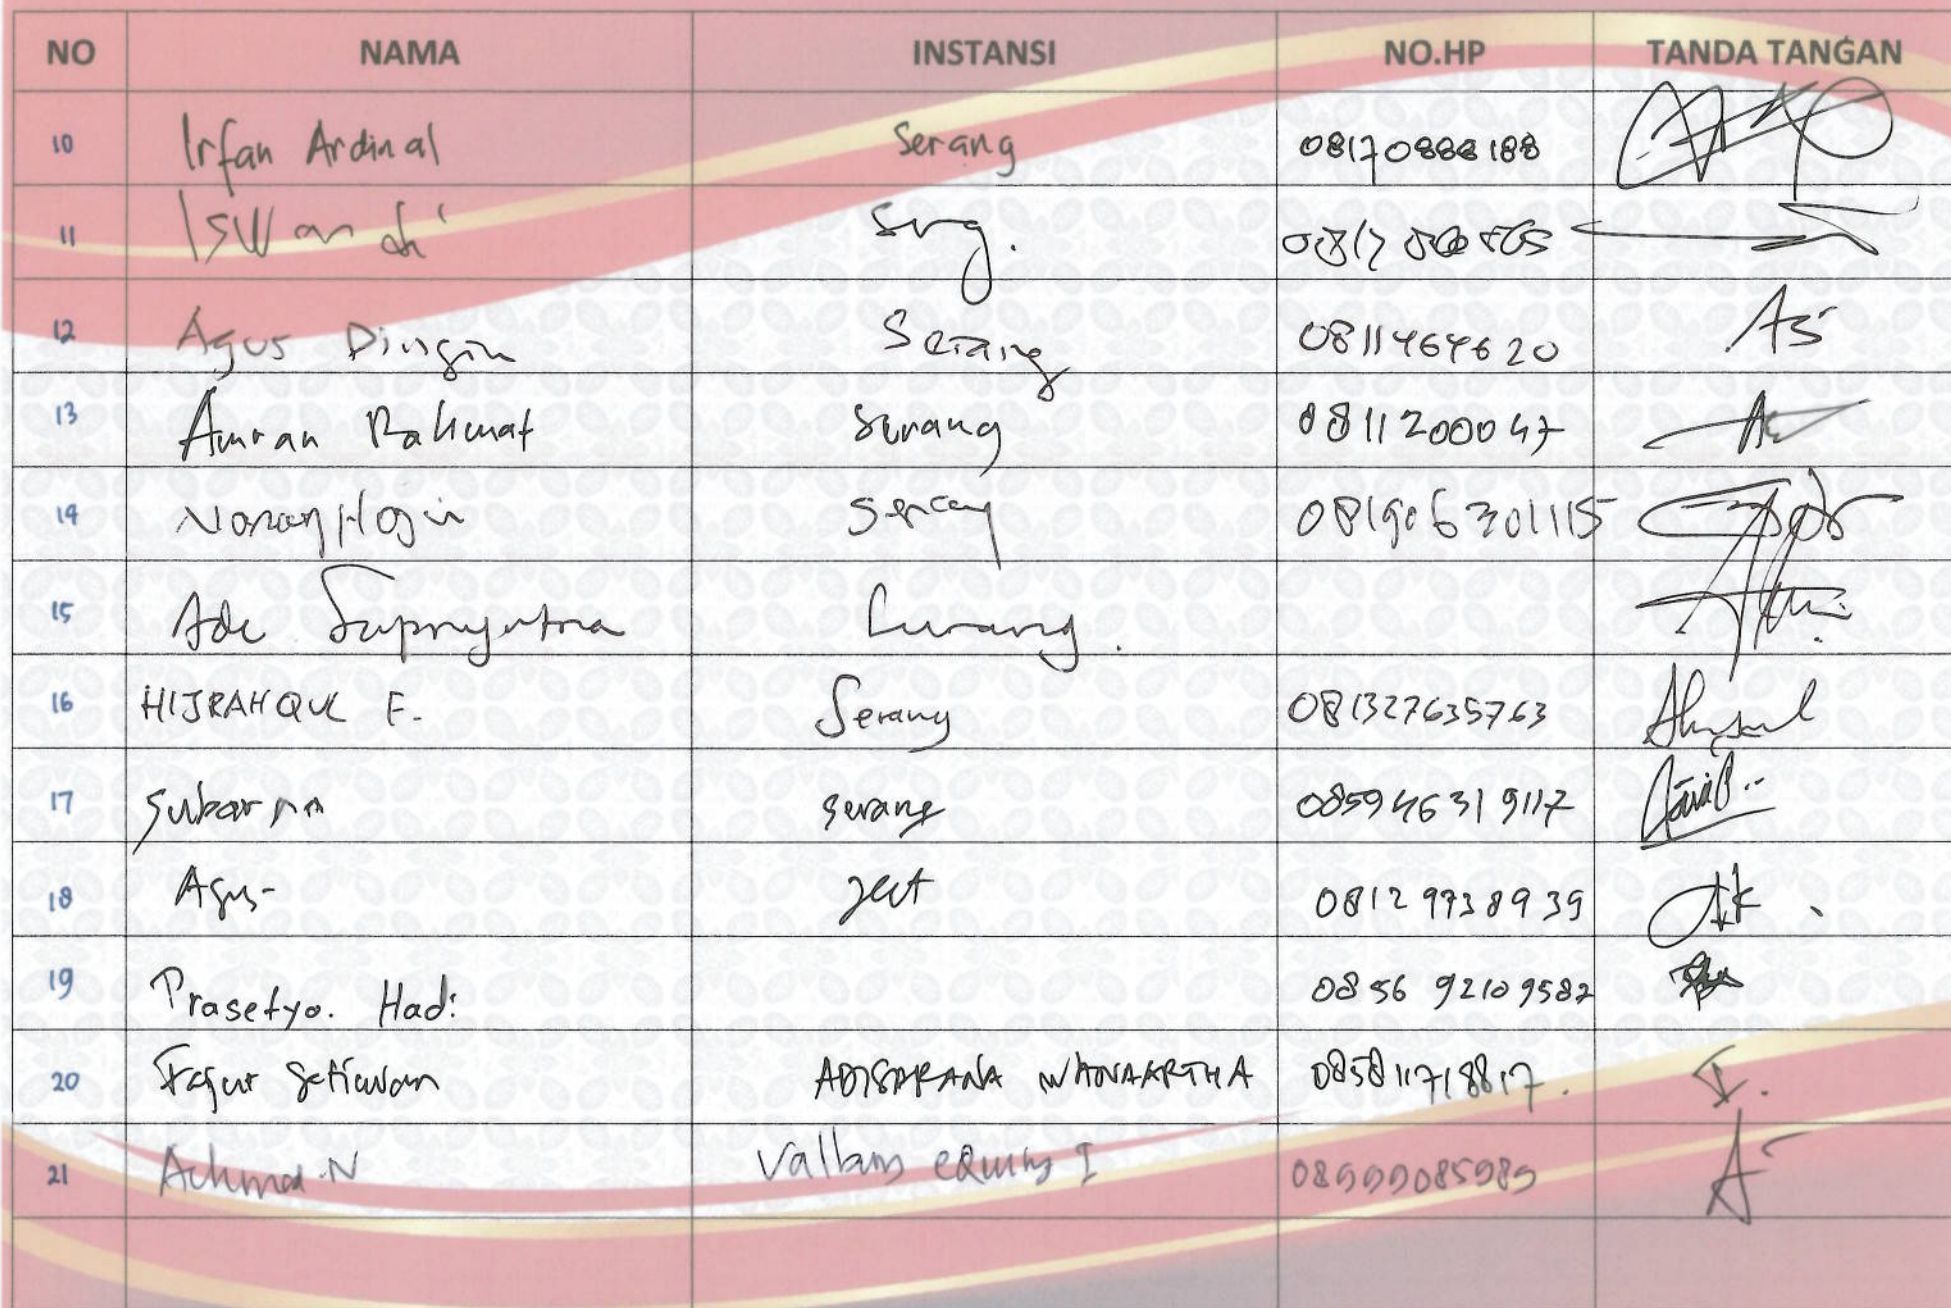 NO NAMA INSTANSI NO.HP TANDA TANGAN
10 Irfan Ardinal Serang 08170888188
11 Iswandi Srg. 0817
12 Agus Dingin Serang 0811464620
13 Amran Rahmat Serang 0811200047
14 Serang 081906301115
15 Ade Serang.
16 HIJRAHQUL F. Serang 081327635763
17 Subarna Serang 085946319117
18 Agus- 081299738939
19 Prasetyo. Hadi 0856 92109582
20 Fajar Setiawan ADISARANA WANAARTHA 085811718817.
21 Achmad.N Valbury 08999085989